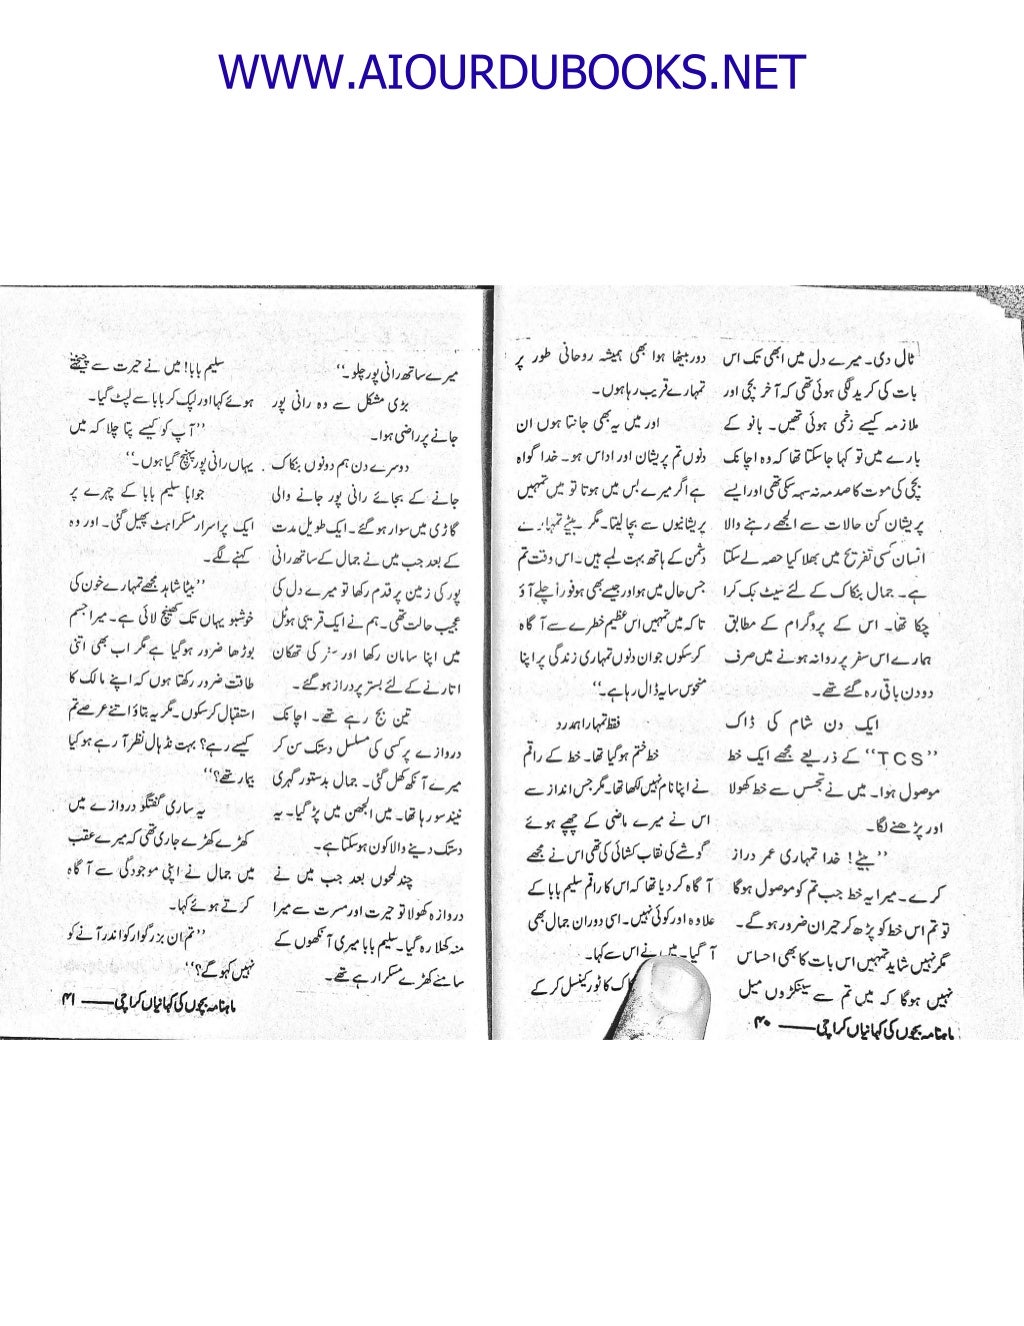 WWW.AIOURDUBOOKS.NET
ٹال دی۔ میرے دل میں ابھی تک اس
بات کی کرید لگی ہوئی تھی کہ آخر بچی اور
ملازمہ کیسے زخمی ہوئی تھیں۔ بانو کے
بارے میں تو کہا جا سکتا تھا کہ وہ اچانک
بچی کی موت کا صدمہ نہ سہہ سکی تھی اور ایسے
پریشان کن حالات سے الجھے رہنے والا
انسان کسی تفریح میں بھلا کیا حصہ لے سکتا
ہے۔ جمال بنکاک کے لئے سیٹ بک کرا
چکا تھا۔ اس کے پروگرام کے مطابق
ہمارے اس سفر پر روانہ ہونے میں صرف
دو دن باقی رہ گئے تھے۔
ایک دن شام کی ڈاک
”TCS“ کے ذریعے مجھے ایک خط
موصول ہوا۔ میں نے تجسس سے خط کھولا
اور پڑھنے لگا۔
”بیٹے! خدا تمہاری عمر دراز
کرے۔ میرا یہ خط جب تم کو موصول ہوگا
تو تم اس خط کو پڑھ کر حیران ضرور ہو گے۔
مگر نہیں شاید تمہیں اس بات کا بھی احساس
نہیں ہوگا کہ میں تم سے سینکڑوں میل
دور بیٹھا ہوا بھی ہمیشہ روحانی طور پر
تمہارے قریب رہا ہوں۔
اور میں یہ بھی جانتا ہوں ان
دنوں تم پریشان اور اداس ہو۔ خدا گواہ
ہے اگر میرے بس میں ہوتا تو میں تمہیں
پریشانیوں سے بچا لیتا۔ مگر بیٹے تمہارے
دشمن کے ہاتھ بہت لمبے ہیں۔ اس وقت تم
جس حال میں ہو اور جیسے بھی ہو فوراً چلے آؤ
تاکہ میں تمہیں اس عظیم خطرے سے آگاہ
کر سکوں جو ان دنوں تمہاری زندگی پر اپنا
منحوس سایہ ڈال رہا ہے۔“
فقط تمہارا ہمدرد
خط ختم ہو گیا تھا۔ خط کے راقم
نے اپنا نام نہیں لکھا تھا۔ مگر جس انداز سے
اس نے میرے ماضی کے چھپے ہوئے
گوشے کی نقاب کشائی کی تھی اس نے مجھے
آگاہ کر دیا تھا کہ اس کا راقم سلیم بابا کے
علاوہ اور کوئی نہیں۔ اسی دوران جمال بھی
آ گیا۔ میں نے اس سے کہا۔
کا ٹور کینسل کر کے
ماہنامہ بچوں کی کہانیاں کراچی — ۴۰
میرے ساتھ رانی پور چلو۔“
بڑی مشکل سے وہ رانی پور
جانے پر راضی ہوا۔
دوسرے دن ہم دونوں بنکاک
جانے کے بجائے رانی پور جانے والی
گاڑی میں سوار ہو گئے۔ ایک طویل مدت
کے بعد جب میں نے جمال کے ساتھ رانی
پور کی زمین پر قدم رکھا تو میرے دل کی
عجیب حالت تھی۔ ہم نے ایک قریبی ہوٹل
میں اپنا سامان رکھا اور سفر کی تھکان
اتارنے کے لئے بستر پر دراز ہو گئے۔
تین بج رہے تھے۔ اچانک
دروازے پر کسی کی مسلسل دستک سن کر
میرے آنکھ کھل گئی۔ جمال بدستور گہری
نیند سو رہا تھا۔ میں الجھن میں پڑ گیا۔ یہ
دستک دینے والا کون ہو سکتا ہے۔
چند لمحوں بعد جب میں نے
دروازہ کھولا تو حیرت اور مسرت سے میرا
منہ کھلا رہ گیا۔ سلیم بابا میری آنکھوں کے
سامنے کھڑے مسکرا رہے تھے۔
سلیم بابا! میں نے حیرت سے چیختے
ہوئے کہا اور لپک کر بابا سے لپٹ گیا۔
”آپ کو کیسے پتا چلا کہ میں
یہاں رانی پور پہنچ گیا ہوں۔“
جواباً سلیم بابا کے چہرے پر
ایک پراسرار مسکراہٹ پھیل گئی۔ اور وہ
کہنے لگے۔
”بیٹا شاہد مجھے تمہارے خون کی
خوشبو یہاں تک کھینچ لائی ہے۔ میرا جسم
بوڑھا ضرور ہو گیا ہے مگر اب بھی اتنی
طاقت ضرور رکھتا ہوں کہ اپنے مالک کا
استقبال کر سکوں۔ مگر یہ بتاؤ اتنے عرصے تم
کیسے رہے؟ بہت نڈھال نظر آ رہے ہو کیا
بیمار تھے؟“
یہ ساری گفتگو دروازے میں
کھڑے کھڑے جاری تھی کہ میرے عقب
میں جمال نے اپنی موجودگی سے آگاہ
کرتے ہوئے کہا۔
”تم ان بزرگوار کو اندر آنے کو
نہیں کہو گے؟“
ماہنامہ بچوں کی کہانیاں کراچی — ۴۱